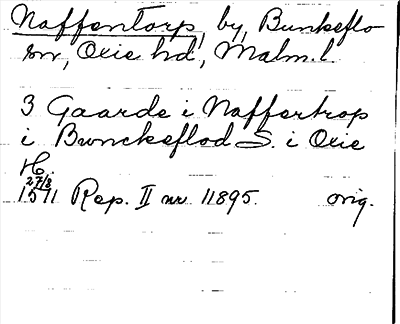 Naffentorp, by, Bunkeflo
sn, Oxie hd, Malm. l.
3 Gaarde i Naffertrop
i Bwnckeflod S. i Oxie
H.
27/8
1571 Rep. II nr. 11895. orig.